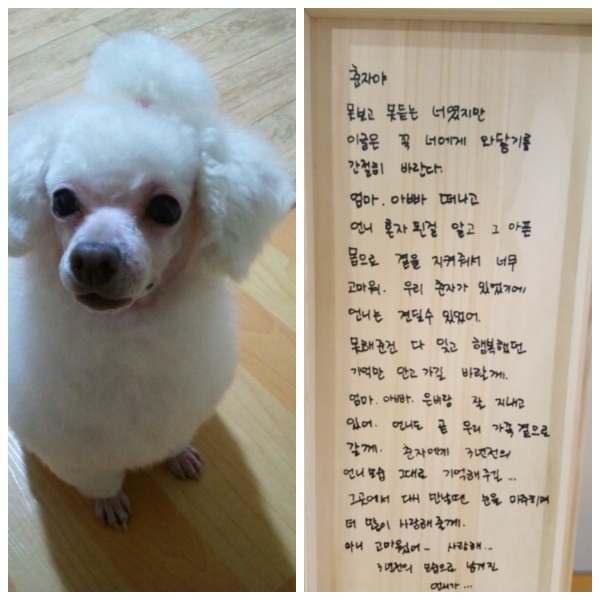 춘자야
못보고 못듣는 너였지만
이글은 꼭 너에게 와닿기를
간절히 바란다.
엄마. 아빠 떠나고
언니 혼자 된걸 알고 그 아픈
몸으로 곁을 지켜줘서 너무
고마워. 우리 춘자가 있었기에
언니는 견딜수 있었어.
못해준건 다 잊고 행복했던
기억만 안고 가길 바랄께.
엄마. 아빠. 은비랑 잘 지내고
있어. 언니도 곧 우리 가족 곁으로
갈께. 춘자에게 3년전의
언니 모습 그대로 기억해주길...
그곳에서 다시 만날땐 눈을 마주치며
더 많이 사랑해 줄께.
마니 고마웠어~ 사랑해..
3년전의 모습으로 남겨진
언니가...